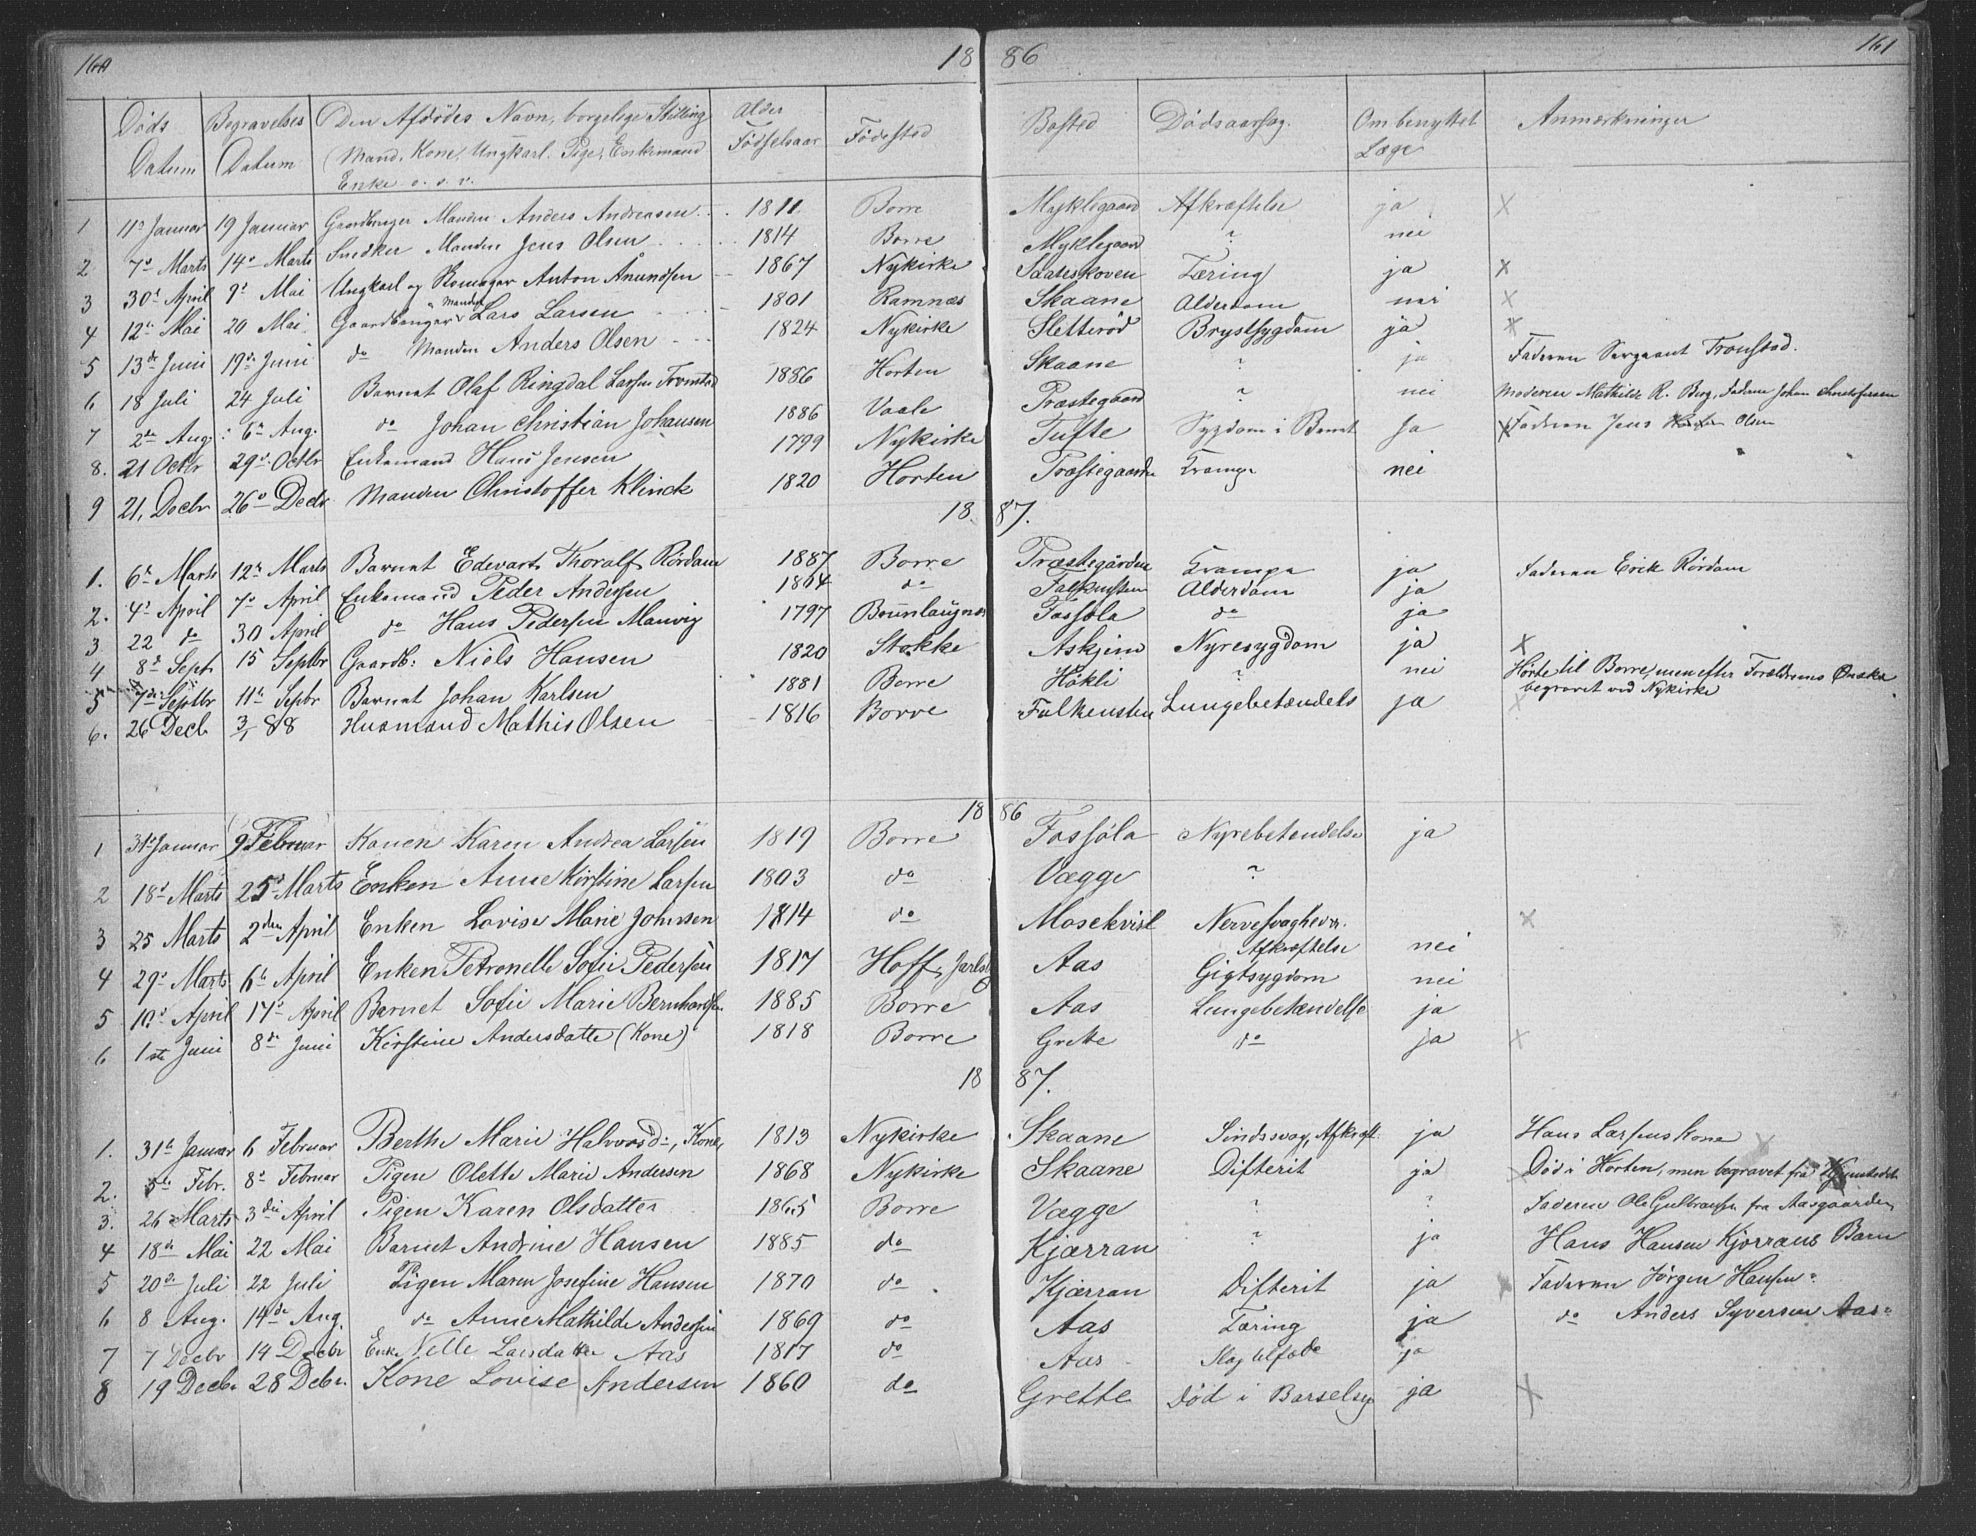 160 18 86 161
Døds Datum | Begravelses Datum | Den Afdødes Navn, borgelige Stilling (Mand, Kone, Ungkarl, Pige, Enkemand Enke o. s. v. | Alder Fødselsaar | Fødested | Bosted | Dødsaarsag | Om benyttet Læge | Anmærkninger
1 11te Januar 19 Januar Gaardbruger Manden Anders Andreasen 1811 Borre Myklegaard Afkræftelse ja x
2 7de Marts 14de Marts Snedker Manden Jens Olsen 1814 Borre Myklegaard ? nei
3 30te April 9de Mai Ungkarl og Anton Anundsen 1867 Nykirke Taring ja x
4 12te Mai 20 Mai Gaardbruger Manden Lars Larsen 1801 Ramnæs Skaane Alderdom nei x
5 13de Juni 19de Juni do Manden Anders Olsen 1824 Nykirke Sletterød Brystsygdom ja x
6 18 Juli 24 Juli Barnet Olaf Ringdal Larsen Tronstad 1886 Horten Skaane ? ja Faderen Sergeant Tronstad.
7 2den Aug. 6te Aug. do Johan Christian Johansen 1886 Vaale Præstegaard ? nei Moderen Mathilde R. Berg, Faderen Johan Christofersen
8. 21 Octbr 29de Octbr Enkemand Hans Jensen 1799 Nykirke Tufte Sygdom i Benet Ja x Faderen Jens Olsen
9 21. Decbr 26de Decbr Manden Christoffer Klinck 1820 Horten Præstegaarden Krampe nei
18 87.
1. 6te Marts 12te Marts Barnet Edevart Thoralf Rørdam 1887 Borre Præstegården Krampe ja Faderen Erik Rørdam
2. 4de April 7de April Enkemand Peder Andersen 1804 do Falkensten Alderdom ja
3 22 do 30 April do Hans Pedersen Manvig 1797 Bounlaugnæs Fossøla do ja
4 8de Sept 15 Septbr Gaardb: Niels Hansen 1820 Stokke Askjem Nyresygdom ja x
5 7de Septbr 11te Septbr Barnet Johan Karlsen 1881 Borre Håkli ? nei Hørte til Borre, men efter Forældrenes Ønske
begravet ved Nykirke
6. 26 Decb. 3/1 88 Husmand Mathis Olsen 1816 Borre Falkensten Lungebetændels ja x
18 86
1 31te Januar 9 Februar Konen Karen Andrea Larsen 1819 Borre Fossøla Nyrebetendelse ja
2 18de Marts 25de Marts Enken Anne Kirstine Larsen 1803 do Vægge ?
3 25 Marts 2den April Enken Lovise Marie Johnsen 1814 do Mosekvist Nervesvaghed x
Afkræftelse nei
4 29de Marts 6te April Enken Petronelle Sofie Pedersen 1817 Hoff, Jarlsb. Aas Gigtsygdom nei
5 10de April 17de April Barnet Sofie Marie Bernhardsen 1885 Borre Aas Lungebetændelse ja
6 1ste Juni 8de Juni Kirstine Andersdatte (Kone) 1818 Borre Grette do ja x
18 87.
1. 31te Januar 6 Februar Berthe Marie Halvorsd:, Kone 1813 Nykirke Skaane Sindssvag, Afkræft. ja Hans Larsens Kone x
2. 5te Febr. 8de Februar Pigen Olette Marie Andersen 1868 Nykirke Skaane Difterit ja x Død i Horten, men begravet fra
3. 26 Marts 3die April Pigen Karen Olsdatter 1865 Borre Vægge ? ? Faderen Ole Gulbransen fra Aasgaarden
4 18de Mai 22 Mai Barnet Andrine Hansen 1885 do Kjærran ? ja Hans Hansen Kjørrans Barn
5 20de Juli 22 Juli Pigen Maren Josefine Hansen 1870 do Kjærran Difterit ja x Faderen Jørgen Hansen
6 8 Aug. 14de Aug. do Anne Mathilde Andersen 1869 do Aas Tæring ja do Anders Syversen Aas
7 7 Decbr 14 Decbr Enke Nelle Larsdatter Aas 1817 do Aas Slagtilfæde ja
8 19 Decbr 28 Debr. Kone Lovise Andersen 1860 do Grette Død i Barselsg ja x